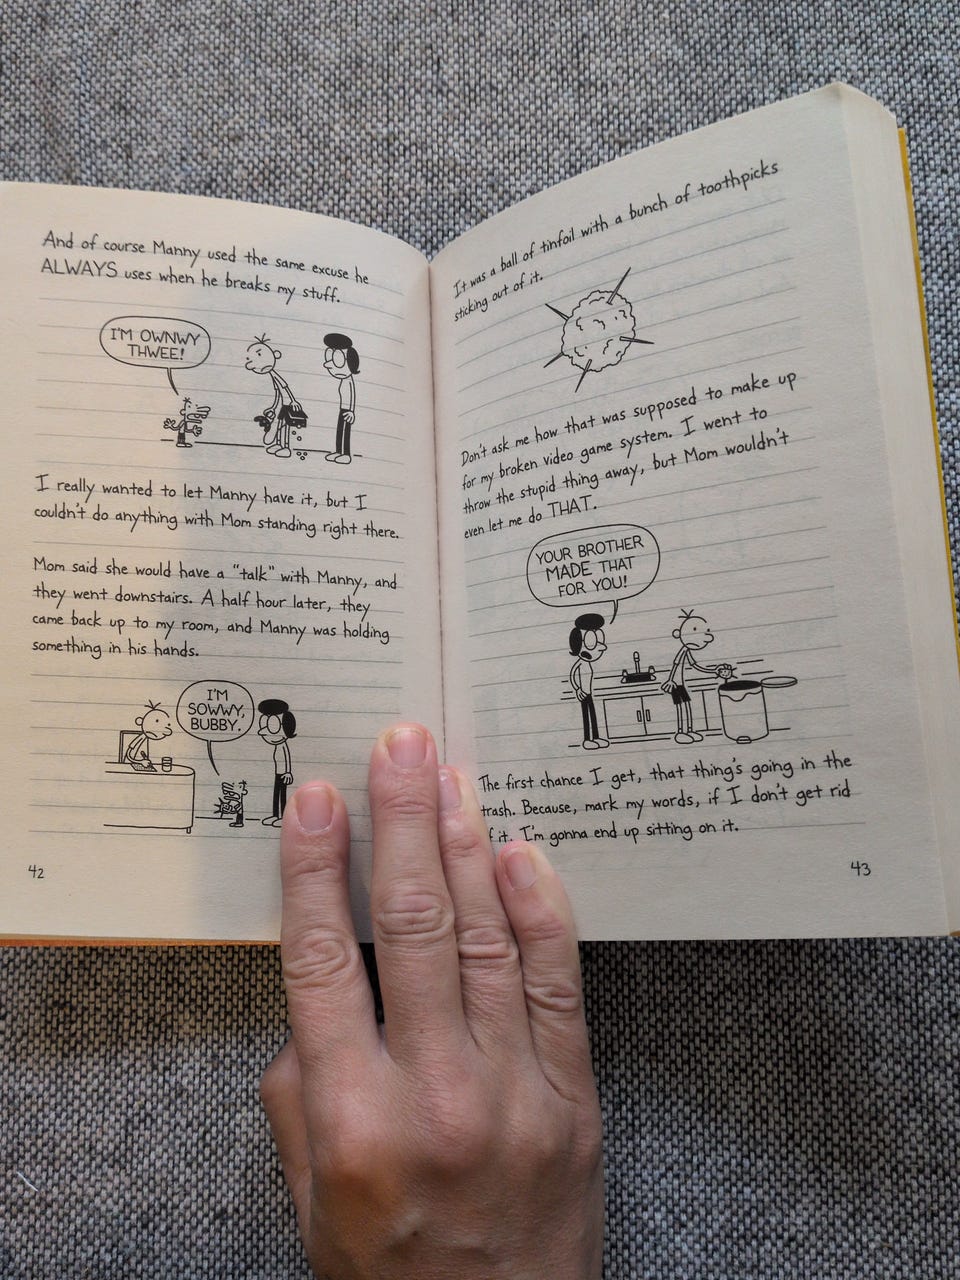 And of course Manny used the same excuse he
ALWAYS uses when he breaks my stuff.
I'M OWNWY
THWEE!
I really wanted to let Manny have it, but I
couldn't do anything with Mom standing right there.
Mom said she would have a "talk" with Manny, and
they went downstairs. A half hour later, they
came back up to my room, and Manny was holding
something in his hands.
I'M
SOWWY,
BUBBY.
42
It was a ball of tinfoil with a bunch of toothpicks
sticking out of it.
Don't ask me how that was supposed to make up
for my broken video game system. I went to
throw the stupid thing away, but Mom wouldn't
even let me do THAT.
YOUR BROTHER
MADE THAT
FOR YOU!
The first chance I get, that thing's going in the
trash. Because, mark my words, if I don't get rid
f it, I'm gonna end up sitting on it.
43